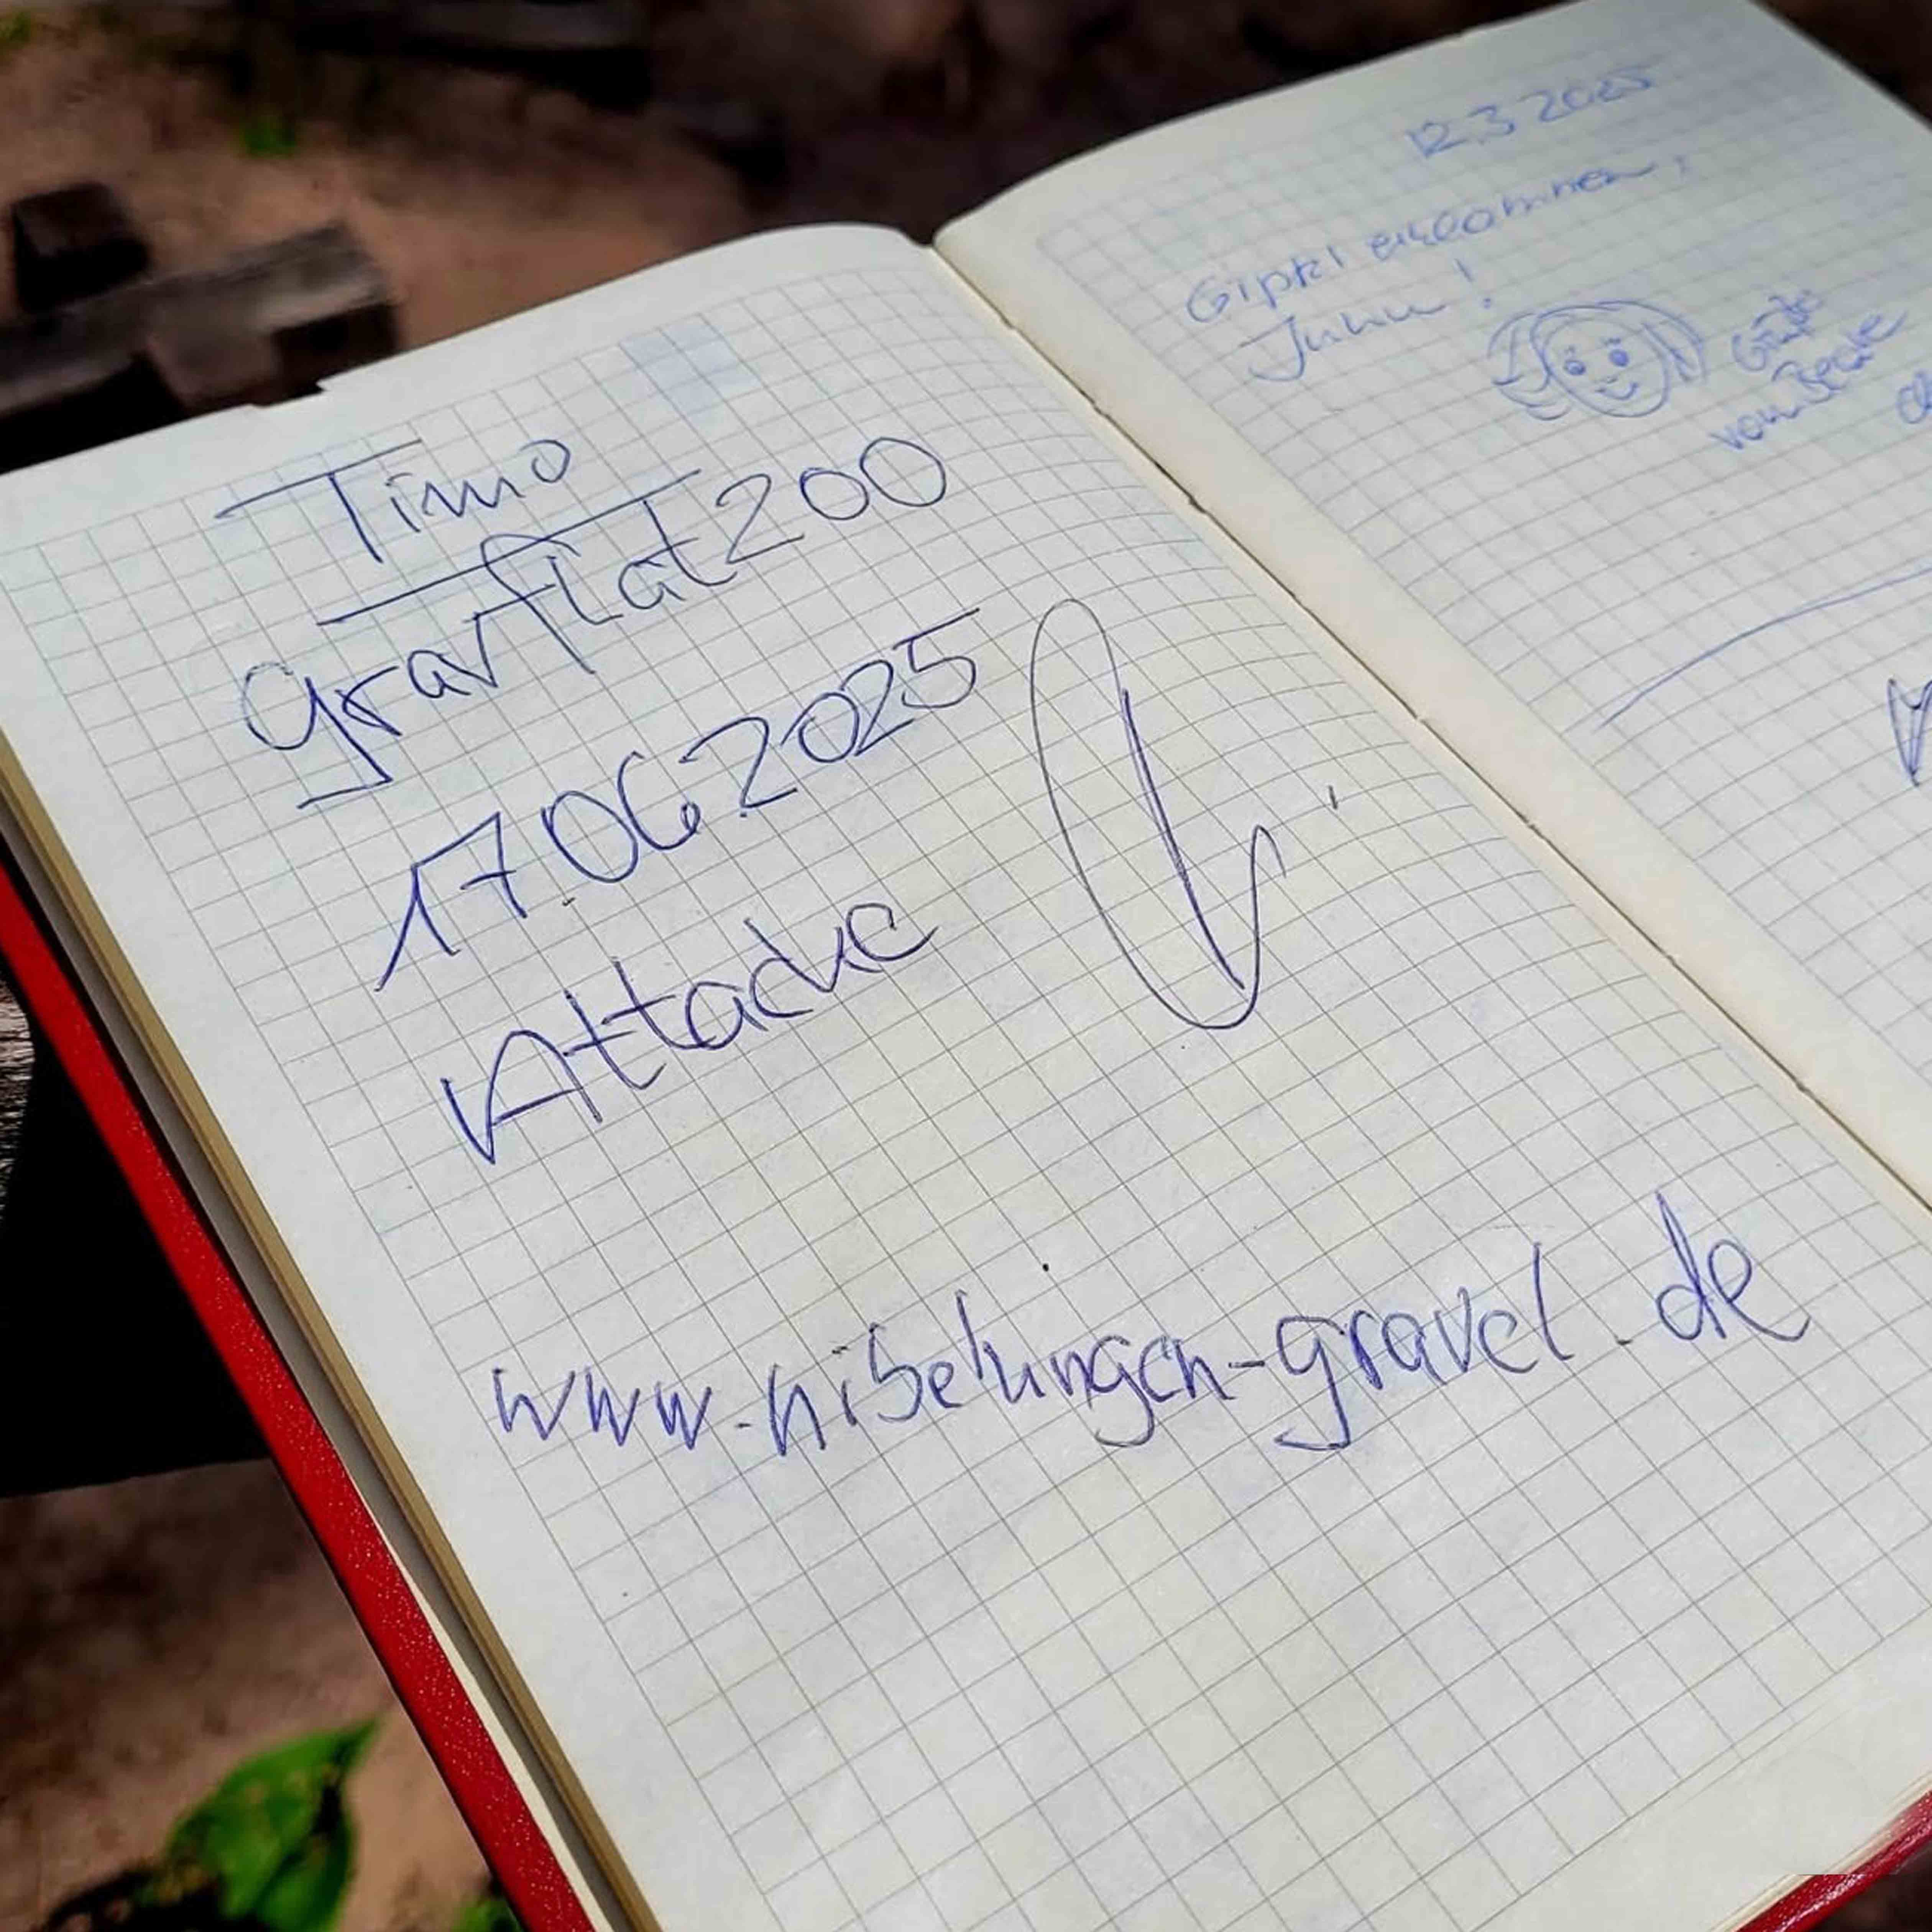 Timo
gravflat200
17.06.2025
Attacke
www.nibelungen-gravel.de
12.3.2025
Gipfel erklommen!
Juhu!
Grüße
von Beate